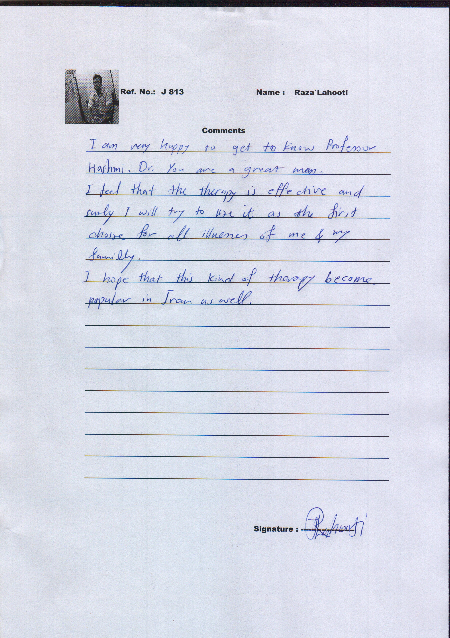 Ref. No.: J 813 Name : Raza Lahooti
Comments
I am very happy to get to know Professor
Hashmi. Dr. You are a great man.
I feel that the therapy is effective and
surly I will try to use it as the first
choise for all illneses of me & my
familly.
I hope that this kind of therapy become
popular in Iran as well.
Signature : RLahooti